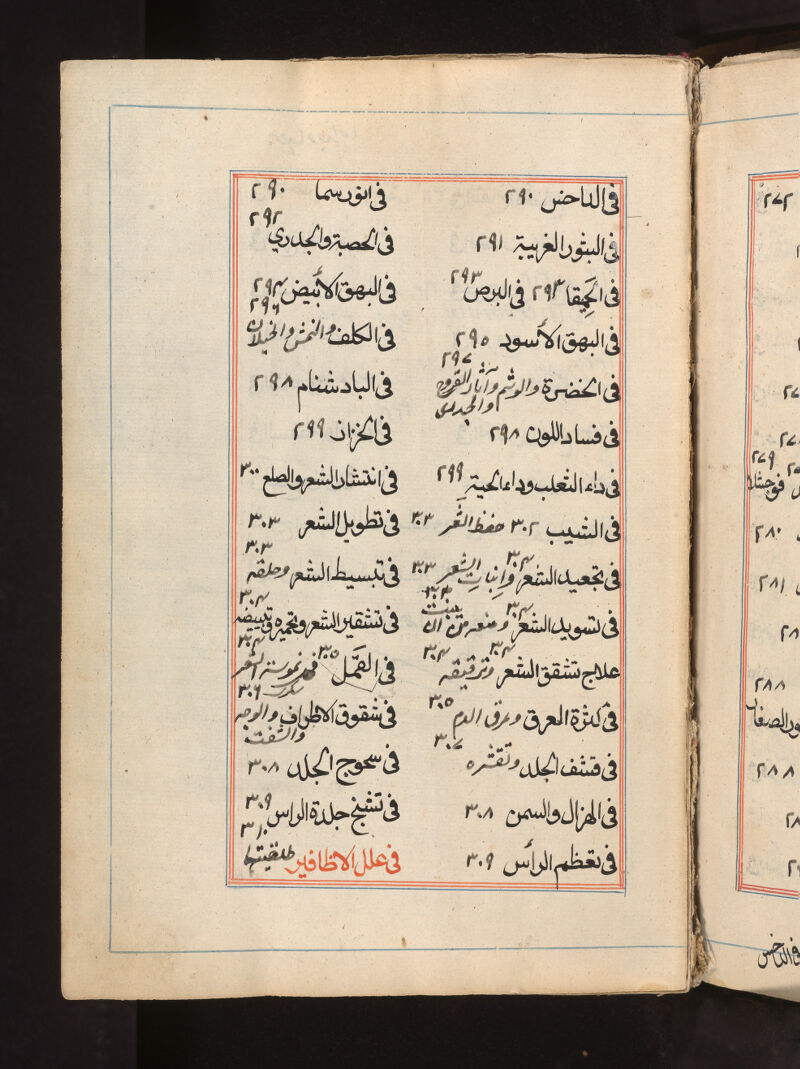 في الداحض ٢٩٠ في انورسما ٢٩٠
في البثور الغريبة ٢٩١ في الحصبة والجدري ٢٩٢
في الحميقا ٢٩٣ في البرص ٢٩٣ في البهق الأبيض ٢٩٤
في البهق الأسود ٢٩٥ في الكلف والنمش والخيلان ٢٩٦
في الخضرة والوشم وآثار القروح والجدري ٢٩٧ في البادشنام ٢٩٨
في فساد اللون ٢٩٨ في الحزاز ٢٩٩
في داء الثعلب وداء الحية ٢٩٩ في انتشار الشعر والصلع ٣٠٠
في الشيب ٣٠٢ حفظ الشعر ٣٠٣ في تطويل الشعر ٣٠٣
في تجعيد الشعر ٣٠٤ وإنبات الشعر ٣٠٣ في تبسيط الشعر وحلقه ٣٠٣
في تسويد الشعر ٣٠٤ ومنعه من ان ينبت ٣٠٣ في تشقير الشعر وتحميره وتبييضه ٣٠٤
علاج تشقق الشعر وترقيقه ٣٠٤ ٣٠٤ في القمل ٣٠٥ الشعر ٣٠٤
في كثرة العرق وعرق الدم ٣٠٥ في شقوق الاطراف والوجه والشفت ٣٠٦
في قشف الجلد وتقشره ٣٠٧ في سحوج الجلد ٣٠٨
في الهزال والسمن ٣٠٨ في تشنج جلدة الراس ٣٠٩
في تعظم الرأس ٣٠٩ في علل الاظافير ٣١٠
٢٧٢
٢٧٩
٢٨٠
٢٨١
٢٨٨
٢٨٨
في الداخس